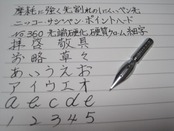 摩耗に強く先割れのしにくいペン先
ニッコー・サンペン・ポイントヘッド
No360 先端硬化、硬質クローム細字
拝啓 敬具
前略 草々
あいうえお
アイウエオ
a b c d e
1 2 3 4 5